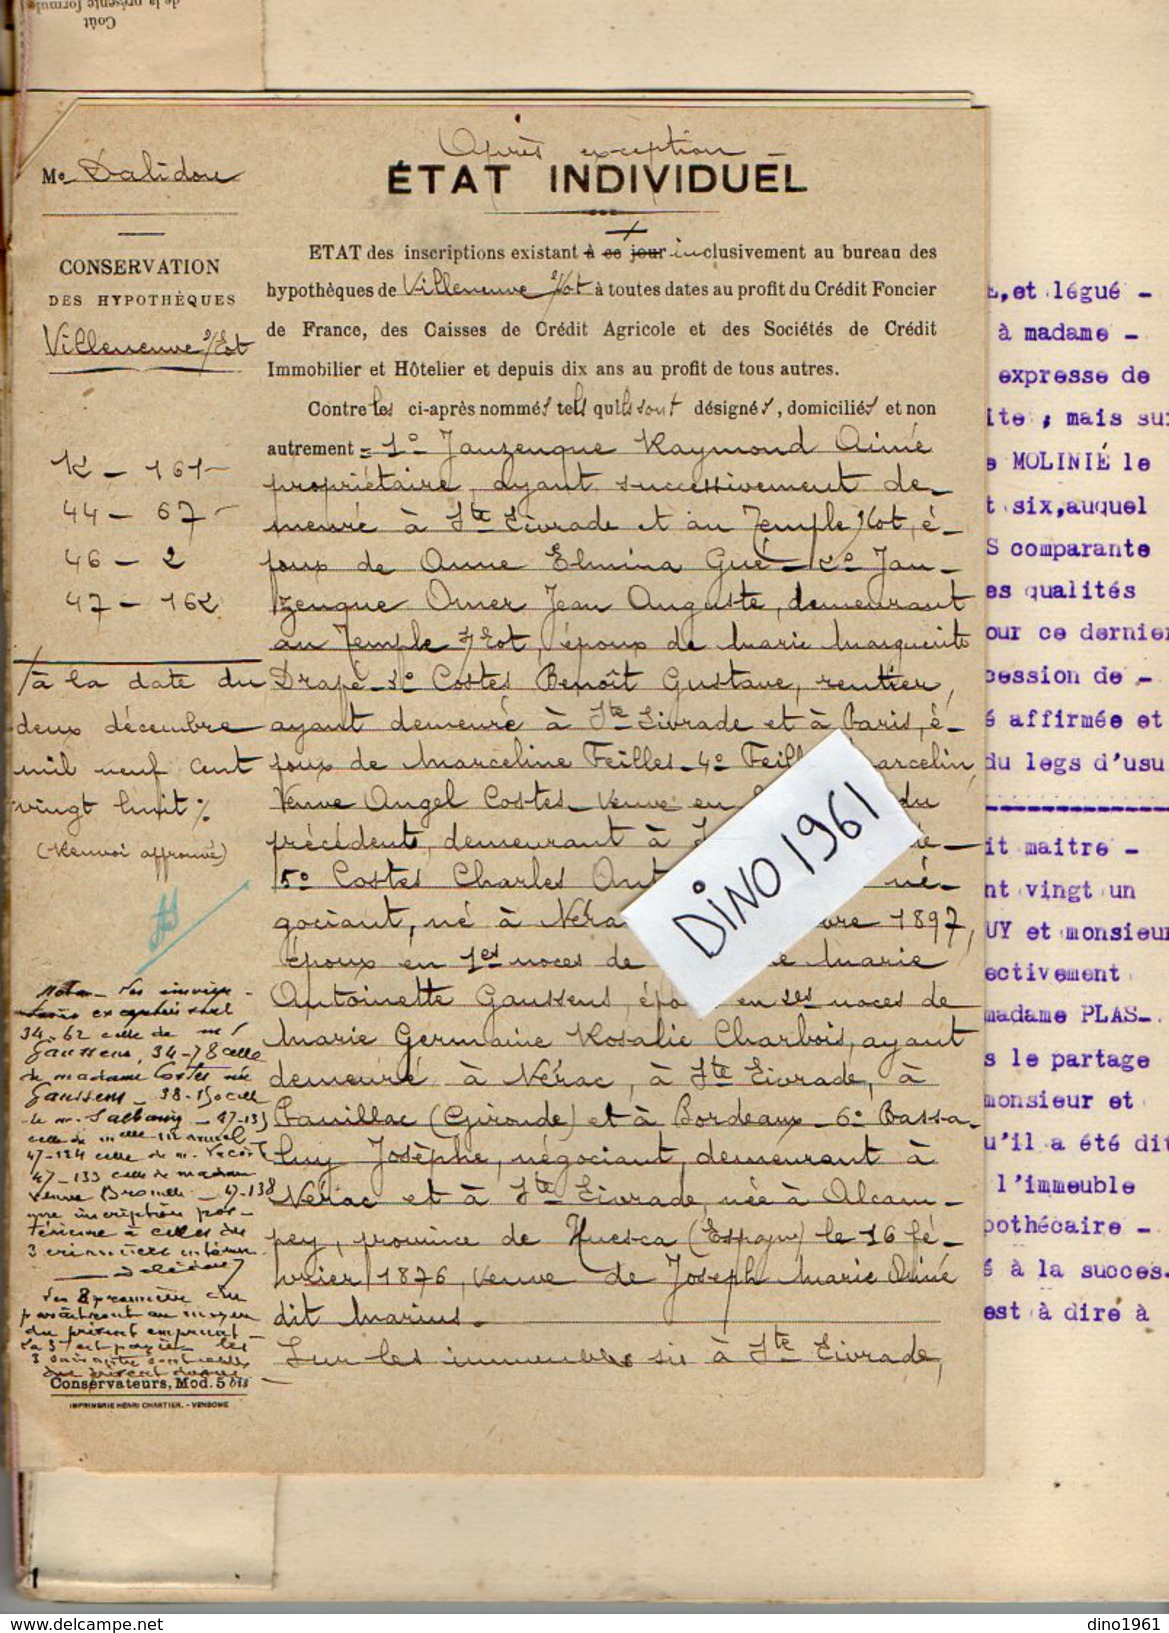 Coût
de la présente formule
Après exception
Me Dalidou
ÉTAT INDIVIDUEL
CONSERVATION
DES HYPOTHÈQUES
Villeneuve s/Lot
ETAT des inscriptions existant à ce jour inclusivement au bureau des
hypothèques de Villeneuve s/Lot à toutes dates au profit du Crédit Foncier
de France, des Caisses de Crédit Agricole et des Sociétés de Crédit
Immobilier et Hôtelier et depuis dix ans au profit de tous autres.
Contre les ci-après nommés tels qu'ils sont désignés, domiciliés et non
autrement = 1° Jauzenque Raymond Aimé
propriétaire, ayant successivement de-
meuré à Ste Livrade et au Temple s/Lot, é-
poux de Anne Elmina Gué - 2° Jau-
zenque Omer Jean Auguste, demeurant
au Temple s/Lot, époux de Marie Marguerite
Drapé - 3° Costes Benoît Gustave, rentier,
ayant demeuré à Ste Livrade et à Paris, é-
poux de Marceline Feilles - 4° Feill arcelin
Veuve Angel Costes - veuve en du
précédent, demeurant à
5° Costes Charles Ant né-
gociant, né à Néra bre 1897,
époux en 1es noces de e Marie
Antoinette Gaussens, épo en 2es noces de
Marie Germaine Rosalie Charbois, ayant
demeuré à Nérac, à Ste Livrade, à
Pauillac (Gironde) et à Bordeaux - 6° Bassa-
luy Josèphe, négociant, demeurant à
Nérac et à Ste Livrade, née à Alcam-
pey, province de Huesca (Espagne) le 16 fé-
vrier 1876, veuve de Joseph Marie Aimé
dit Marius.
Sur les immeubles sis à Ste Livrade,
K - 161
44 - 67
46 - 2
47 - 162
/à la date du
deux décembre
mil neuf cent
vingt huit %
(Renvoi approuvé)
Nota - Les inscrip-
tions exceptées sont
34-62 celle de Mr
Gaussens, 34-78 celle
de madame Costes née
Gaussens - 38-150 celle
de Mr. - 47-135
celle de Melle
47-124 celle de M.
47-133 celle de madame
veuve - 47-138
une inscription pos-
térieure à celles des
3
Les 8 premières
paraîtront au moyen
du présent emprunt -
Conservateurs, Mod. 5 bis
IMPRIMERIE HENRI CHARTIER. - VENDOME
DINO 1961
,et légué -
à madame -
expresse de
ite ; mais sui
MOLINIÉ le
t six,auquel
S comparante
es qualités
our ce dernier
cession de -
é affirmée et
du legs d'usu
it maitre -
nt vingt un
UY et monsieur
ectivement
madame PLAS-
s le partage
monsieur et
u'il a été dit
l'immeuble
pothécaire -
é à la succes-
est à dire à
www.delcampe.net
dino1961